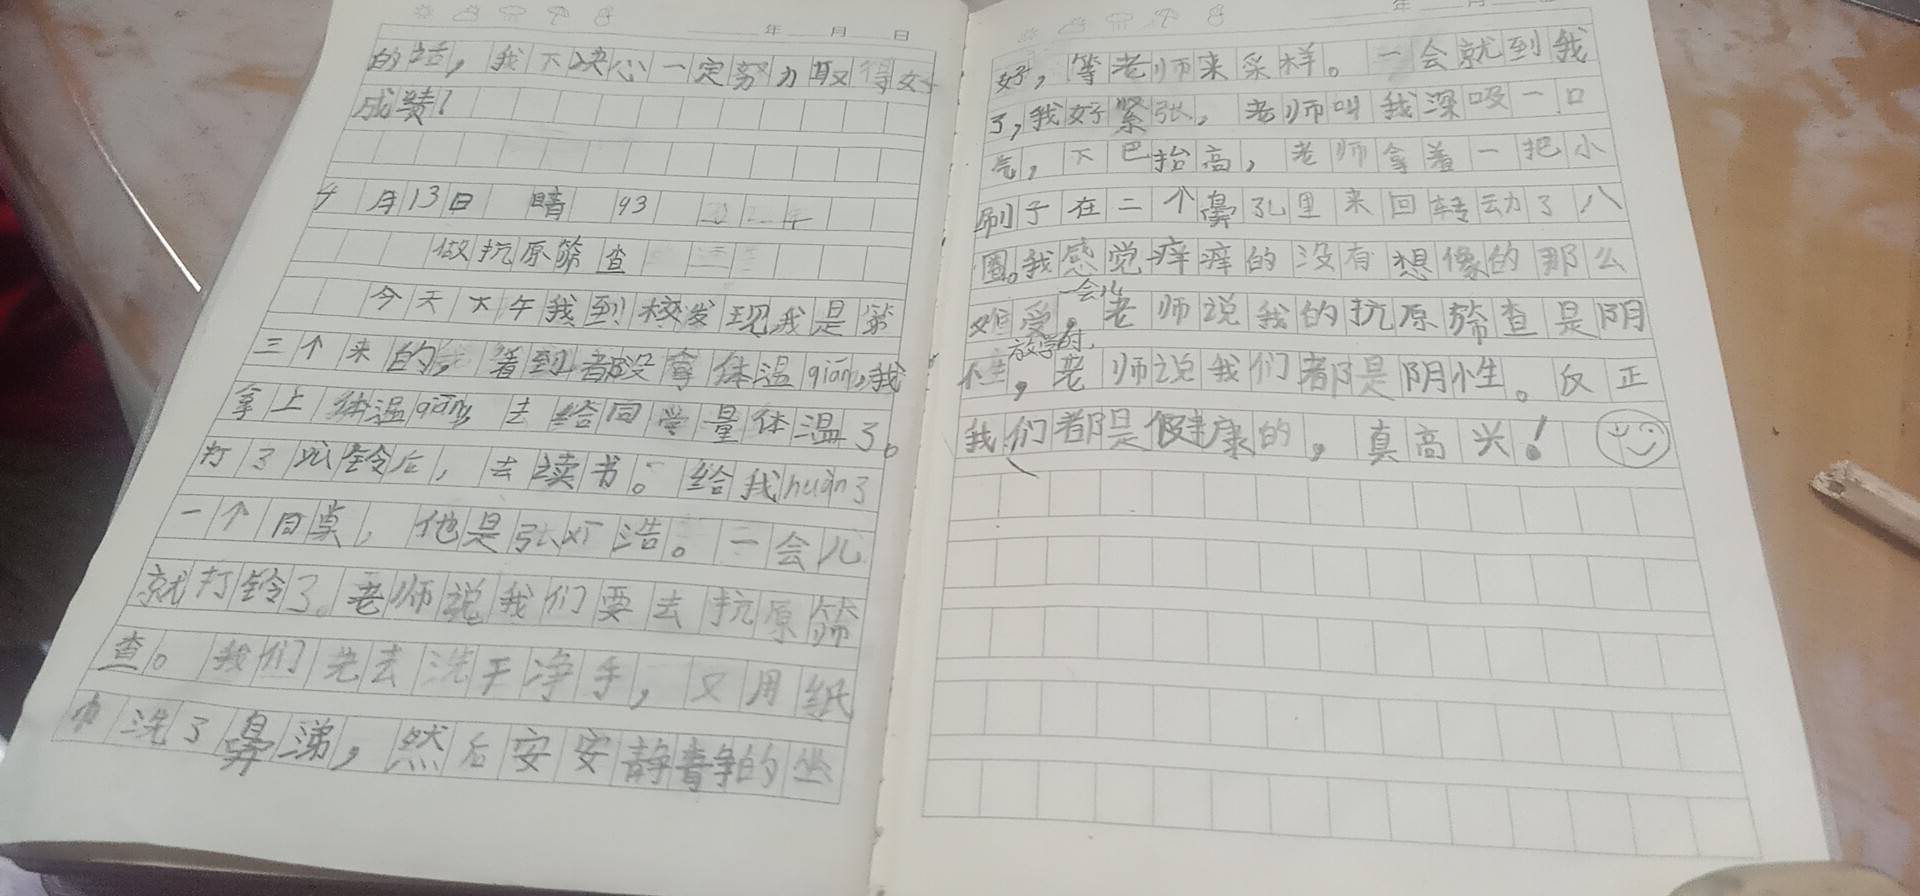 年 月 日
的话，我下决心一定努力取得好
成绩！
4月13日 晴 93
做抗原筛查
今天下午我到校发现我是第
三个来的，看到都没拿体温qiāng，我
拿上体温qiāng去给同学量体温了。
打了预铃后，去读书。给我huàn了
一个同桌，他是张 浩。一会儿
就打铃了。老师说我们要去抗原筛
查。我们先去洗干净手，又用纸
巾洗了鼻涕，然后安安静静的坐
年 月 日
好，等老师来采样。一会就到我
了，我好紧张，老师叫我深吸一口
气，下巴抬高，老师拿着一把小
刷子在二个鼻孔里来回转动了八
圈。我感觉痒痒的没有想像的那么
难受。一会儿老师说我的抗原筛查是阴
性，放学时，老师说我们都是阴性。反正
我们都是健康的，真高兴！